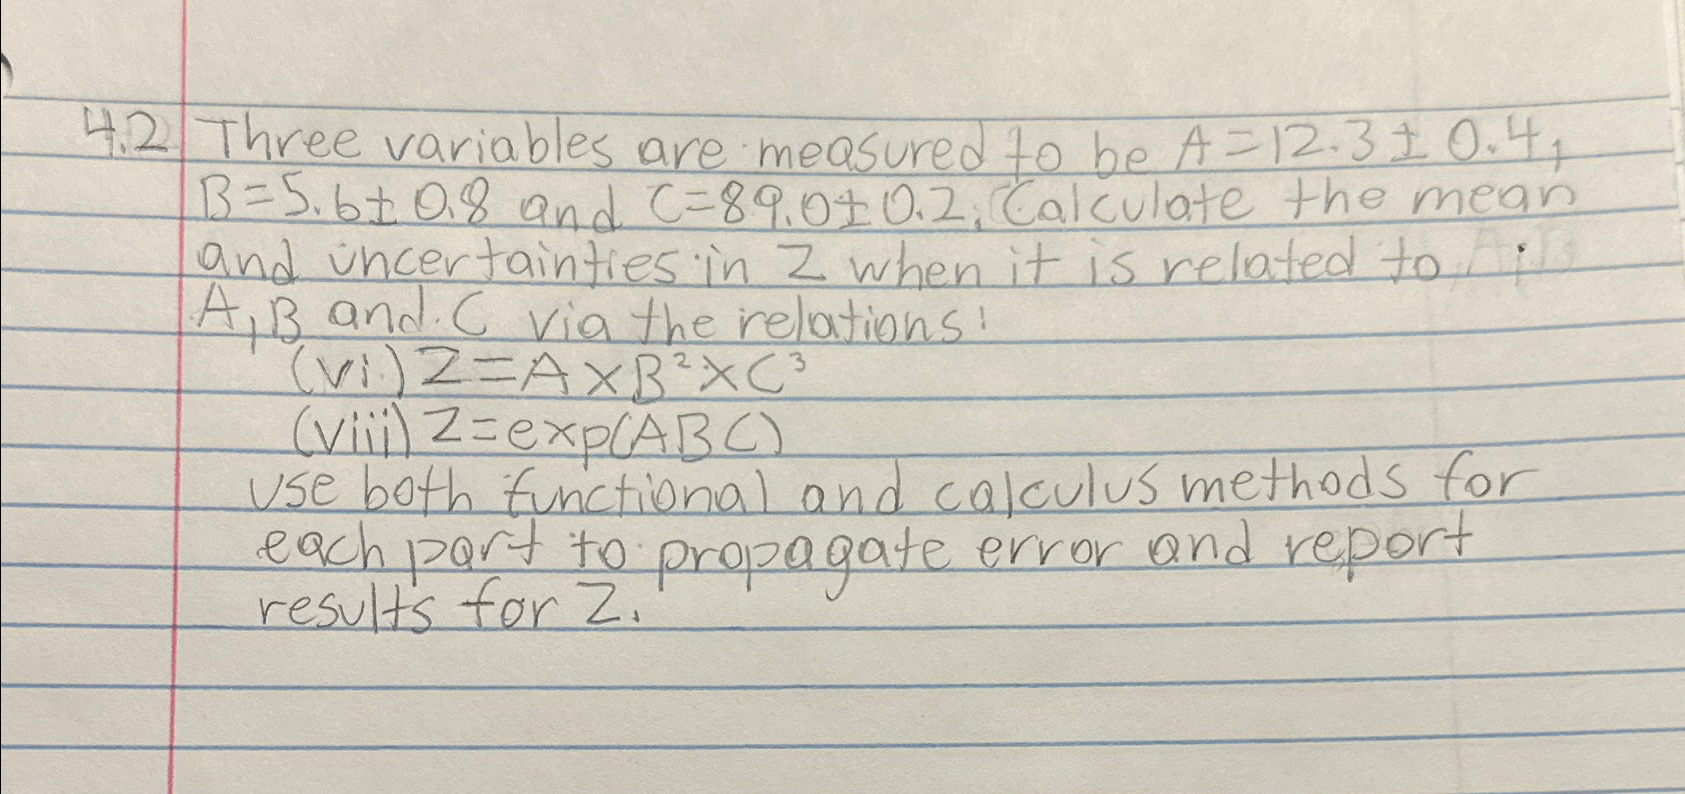 4.2 Three variables are measured to be A=12.3±0.4,
B=5.6±0.8 and C=89.0±0.2. Calculate the mean
and uncertainties in Z when it is related to
A,B and C via the relations:
(vi) Z=A×B²×C³
(viii) Z=exp(ABC)
use both functional and calculus methods for
each part to propagate error and report
results for Z.